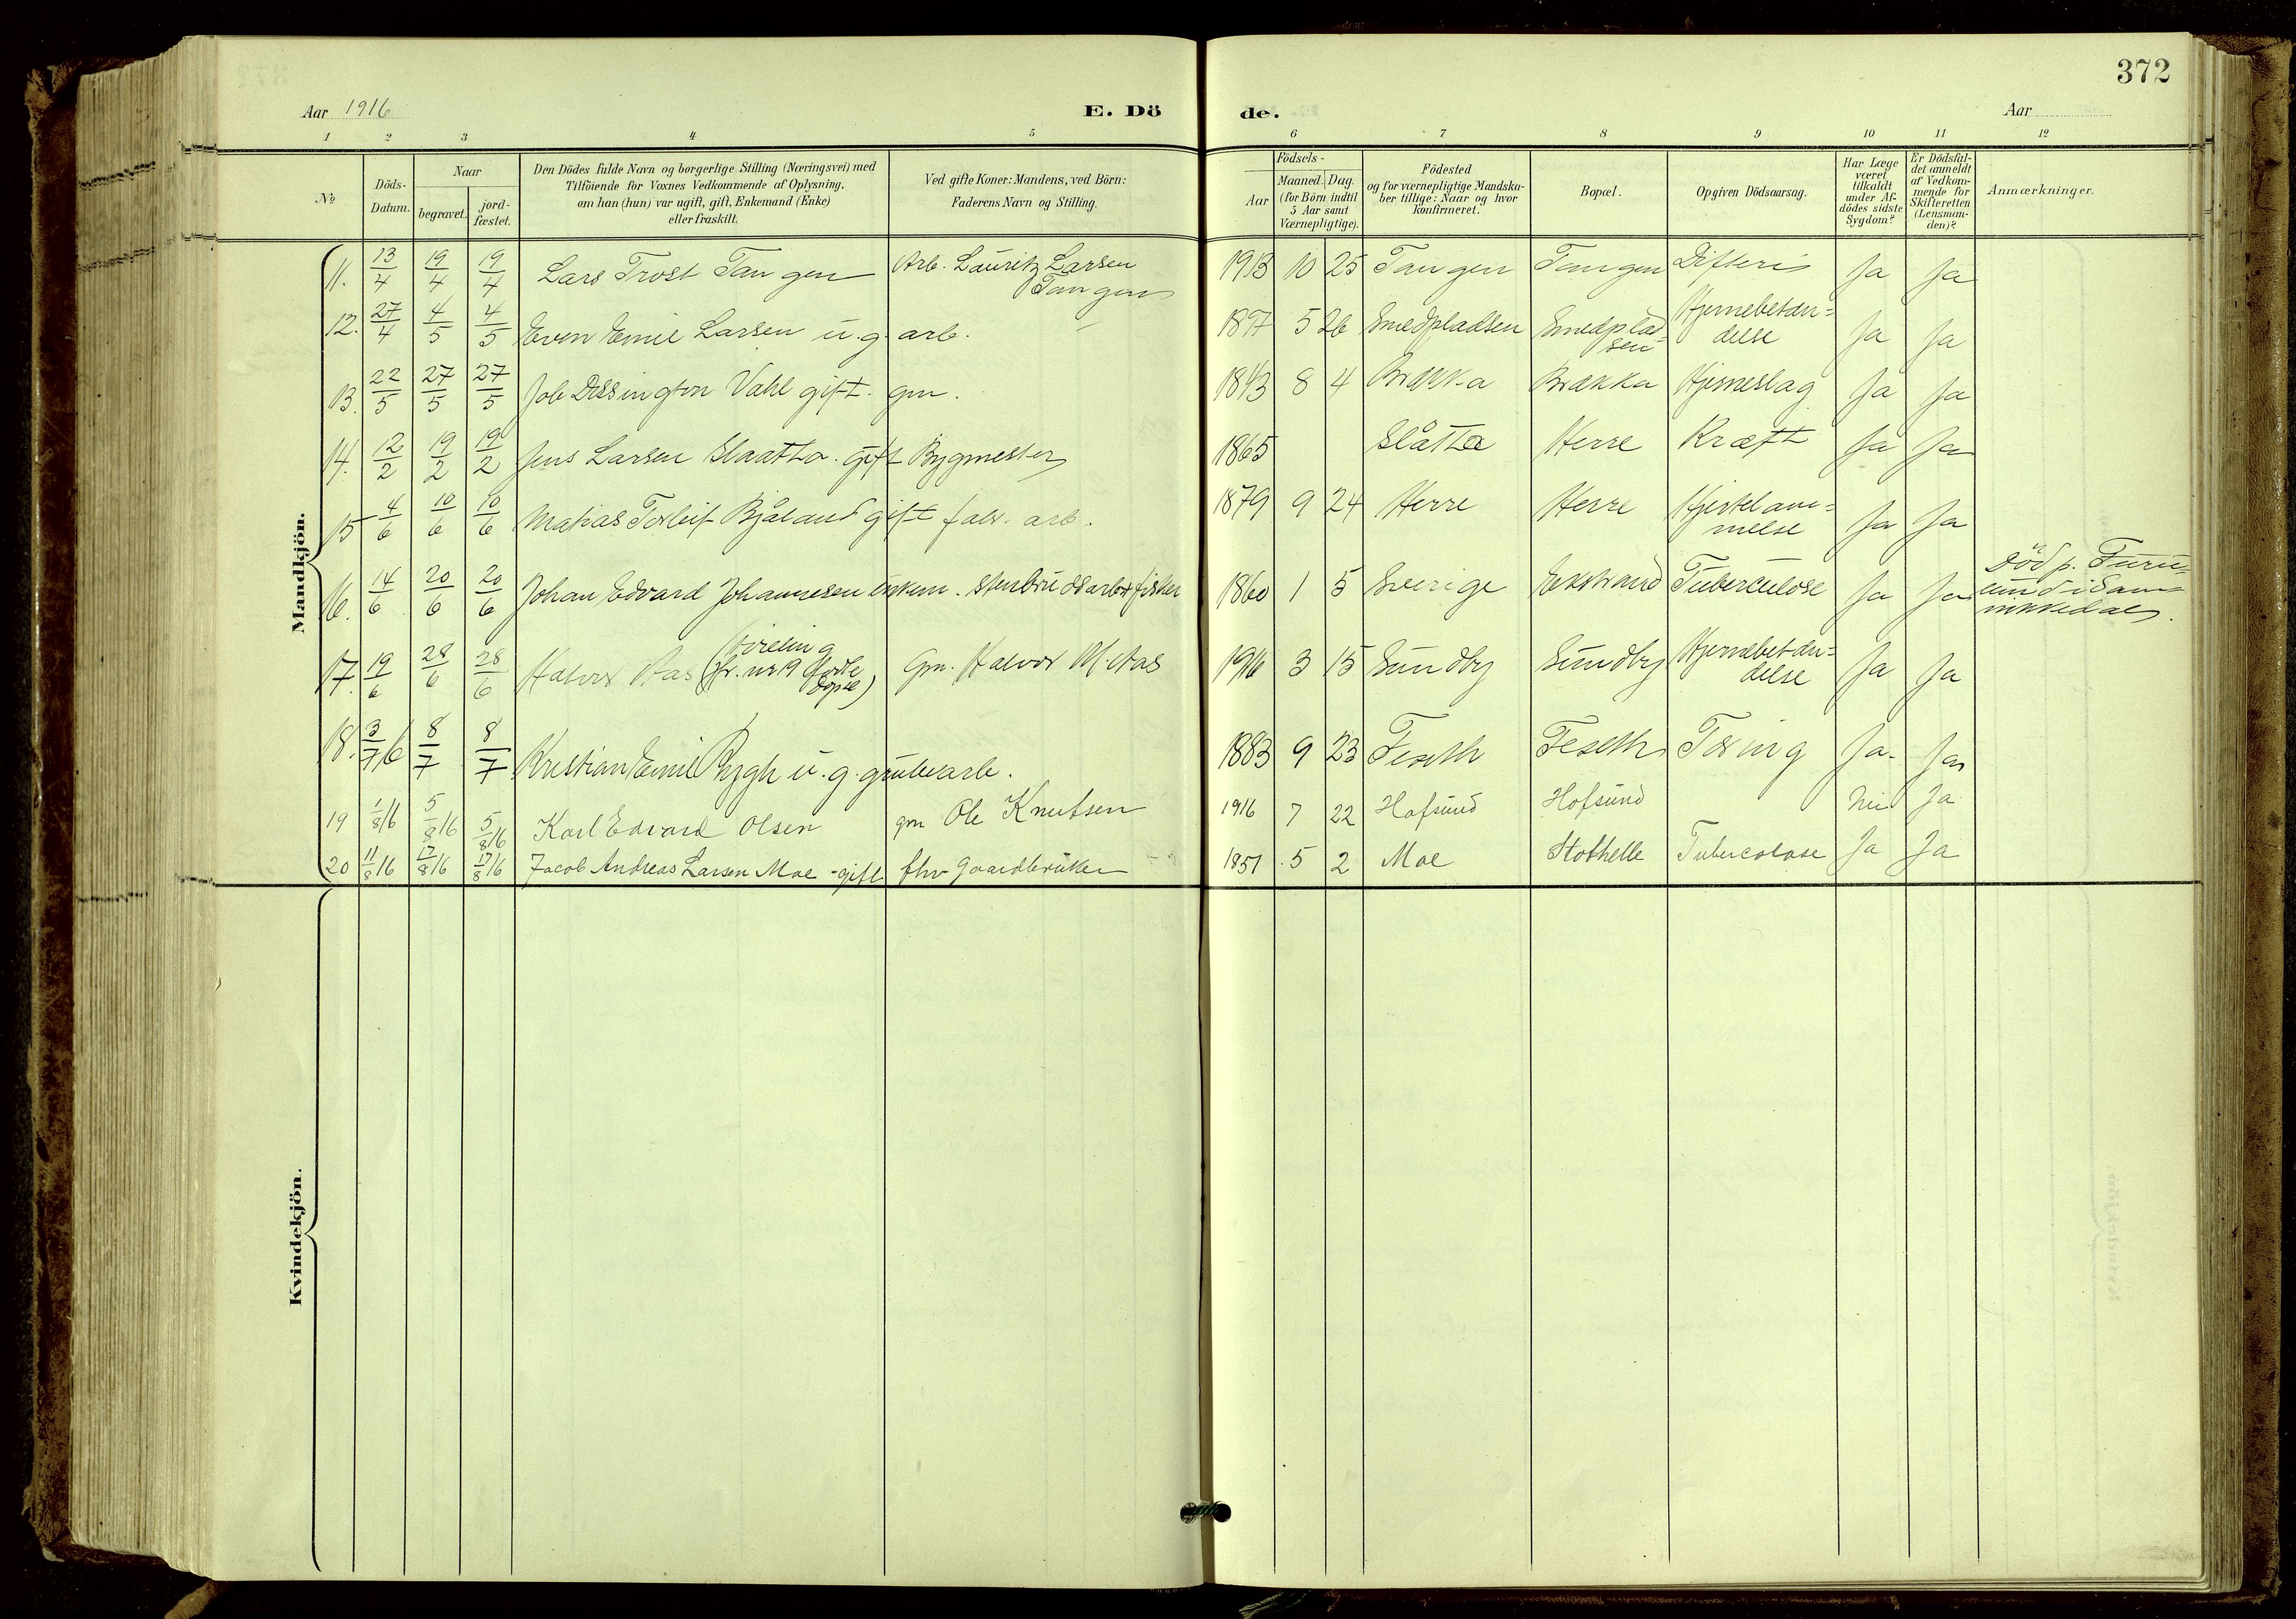 372
Aar 1916 E. Dö de. Aar
1 2 3 4 5 6 7 8 9 10 11 12
№
Döds-Datum.
Naar
begravet.
jord-fæstet.
Den Dödes fulde Navn og borgerlige Stilling (Næringsvei) med
Tilföiende for Voxnes Vedkommende af Oplysning,
om han (hun) var ugift, gift, Enkemand (Enke)
eller fraskilt.
Ved gifte Koner: Mandens, ved Börn:
Faderens Navn og Stilling.
Födsels-
Aar
Maaned. Dag.
(for Börn indtil
5 Aar samt
Værnepligtige).
Födested
og for værnepligtige Mandska-
ber tillige: Naar og hvor
konfirmeret.
Bopæl.
Opgiven Dödsaarsag.
Har Læge
været
tilkaldt
under Af-
dödes sidste
Sygdom?
Er Dödsfal-
det anmeldt
af Vedkom-
mende for
Skifteretten
(Lensman-
den)?
Anmærkninger.
Mandkjön.
11. 13/4 19/4 19/4 Lars Trost Tangen Arb. Lauritz Larsen Tangen 1913 10 25 Tangen Tangen Difteri Ja Ja
12. 27/4 4/5 4/5 Even Emil Larsen u.g. arb. 1897 5 26 Smedpladsen Smedplad=sen Hjernebetæn=delse Ja Ja
13. 22/5 27/5 27/5 Job Dissington Vahl gift. gm. 1843 8 4 Brækka Brækka Hjerneslag Ja Ja
14. 12/2 19/2 19/2 Jens Larsen Slaatta. gift Bygmester 1865 Slåtta Herre Kræft Ja Ja
15 4/6 10/6 10/6 Matias Torleif Bjåland gift fabr. arb. 1879 9 24 Herre Herre Hjertelam=melse Ja Ja
16. 14/6 20/6 20/6 Johan Edvard Johannesen enkem. stenbrudsarb. + fisker 1860 1 5 Sverige Eksstrand Tuberculose Ja Ja Död p. Furu=lund i San=nikedal.
17. 19/6 28/6 28/6 Halvor Aas (tvilling jfr. nr 19 födte döpte) Gm. Halvor M. Aas 1916 3 15 Sundby Sundby Hjernebetæn=delse Ja Ja
18. 3/7 16 8/7 8/7 Kristian Emil Rygh u.g. grubearb. 1883 9 23 Feseth Feseth Tæring Ja. Ja
19 1/8 16 5/8 16 5/8 16 Karl Edvard Olsen gm Ole Knutsen 1916 7 22 Hafsund Hofsund Nei Ja
20 11/8 16 17/8 16 17/8 16 Jacob Andreas Larsen Moe - gift fhv gaardbruker 1851 5 2 Moe Stathelle Tubercolose Ja Ja
Kvindekjön.